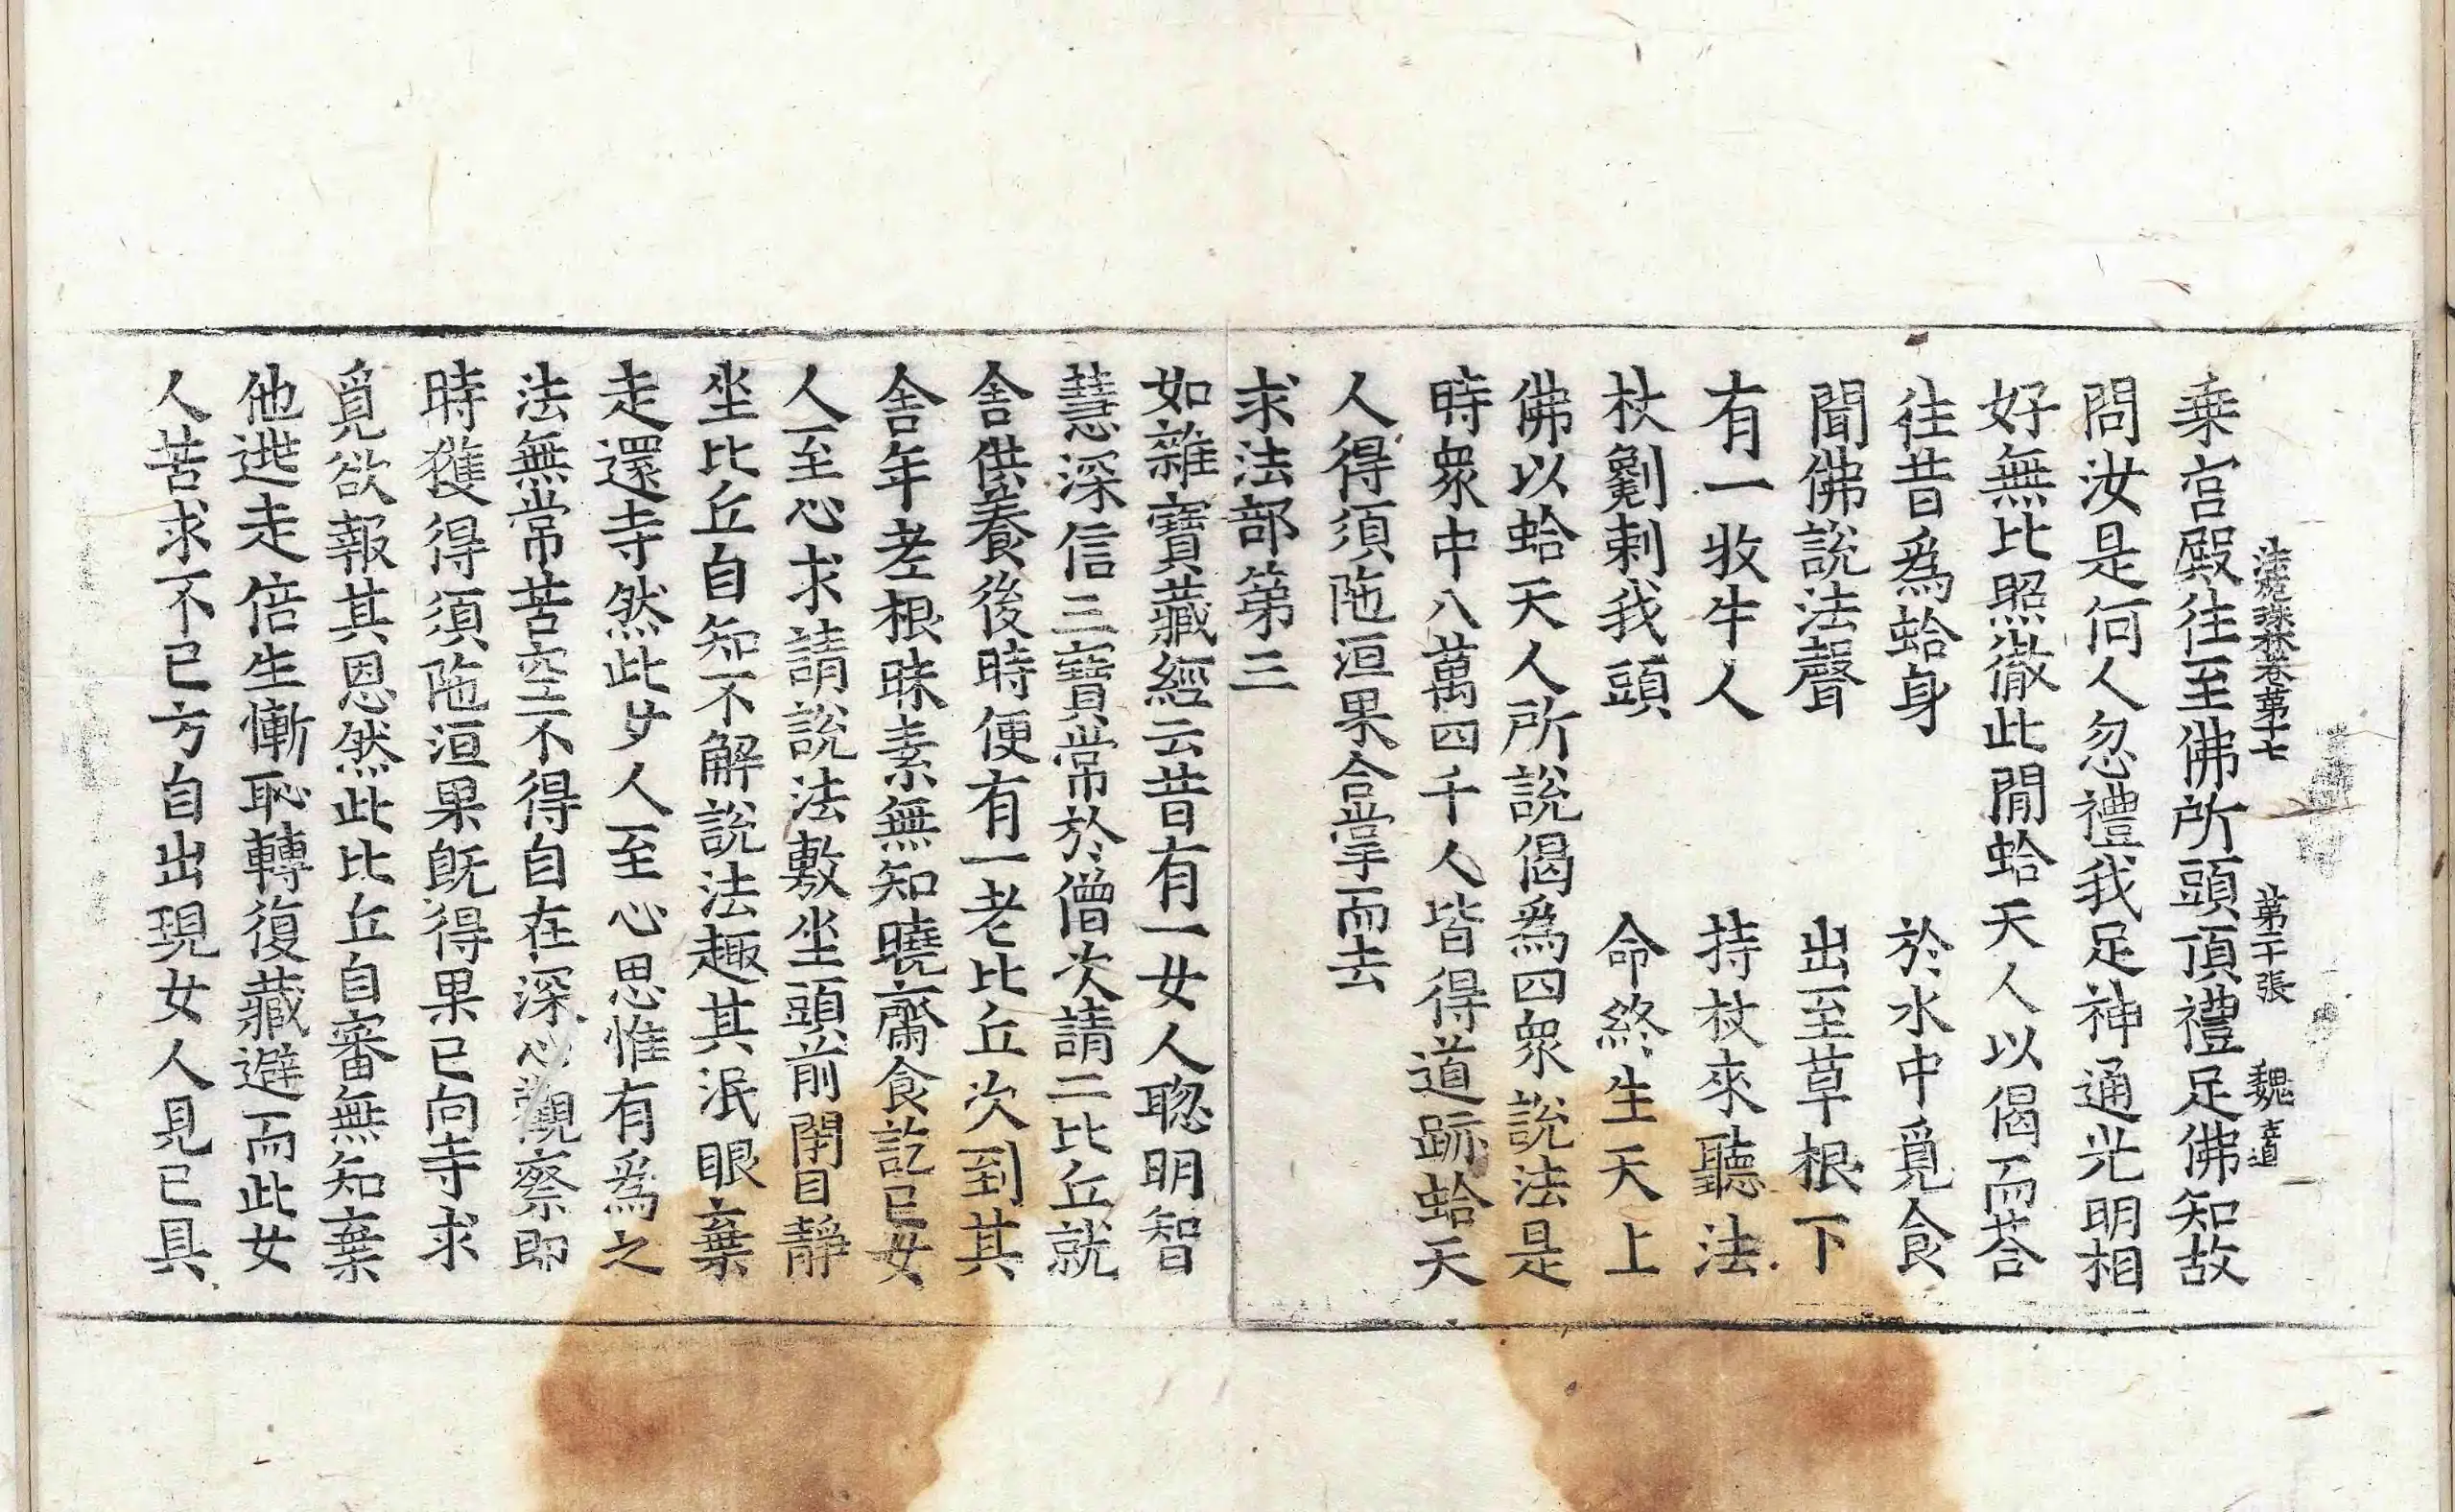 法苑珠林卷第十七 第二十張 魏道
乗宮殿往至佛所頭頂禮足佛知故
問汝是何人忽禮我足神通光明相
好無比照徹此閒蛤天人以偈而荅
往昔爲蛤身 於水中覓食
聞佛說法聲 出至草根下
有一牧牛人 持杖來聽法
杖劖刺我頭 命終生天上
佛以蛤天人所說偈爲四衆說法是
時衆中八萬四千人皆得道跡蛤天
人得須陁洹果合掌而去
求法部第三
如雜寶藏經云昔有一女人聡明智
慧深信三寶常於僧次請二比丘就
舍供養後時便有一老比丘次到其
舍年老根昧素無知曉齋食訖已女
人至心求請說法敷坐頭前閇目靜
坐比丘自知不解說法趣其泯眼棄
走還寺然此女人至心思惟有爲之
法無常苦空不得自在深心觀察即
時獲得須陁洹果既得果已向寺求
覓欲報其恩然此比丘自審無知棄
他逃走倍生慚恥轉復藏避而此女
人苦求不已方自出現女人見已具